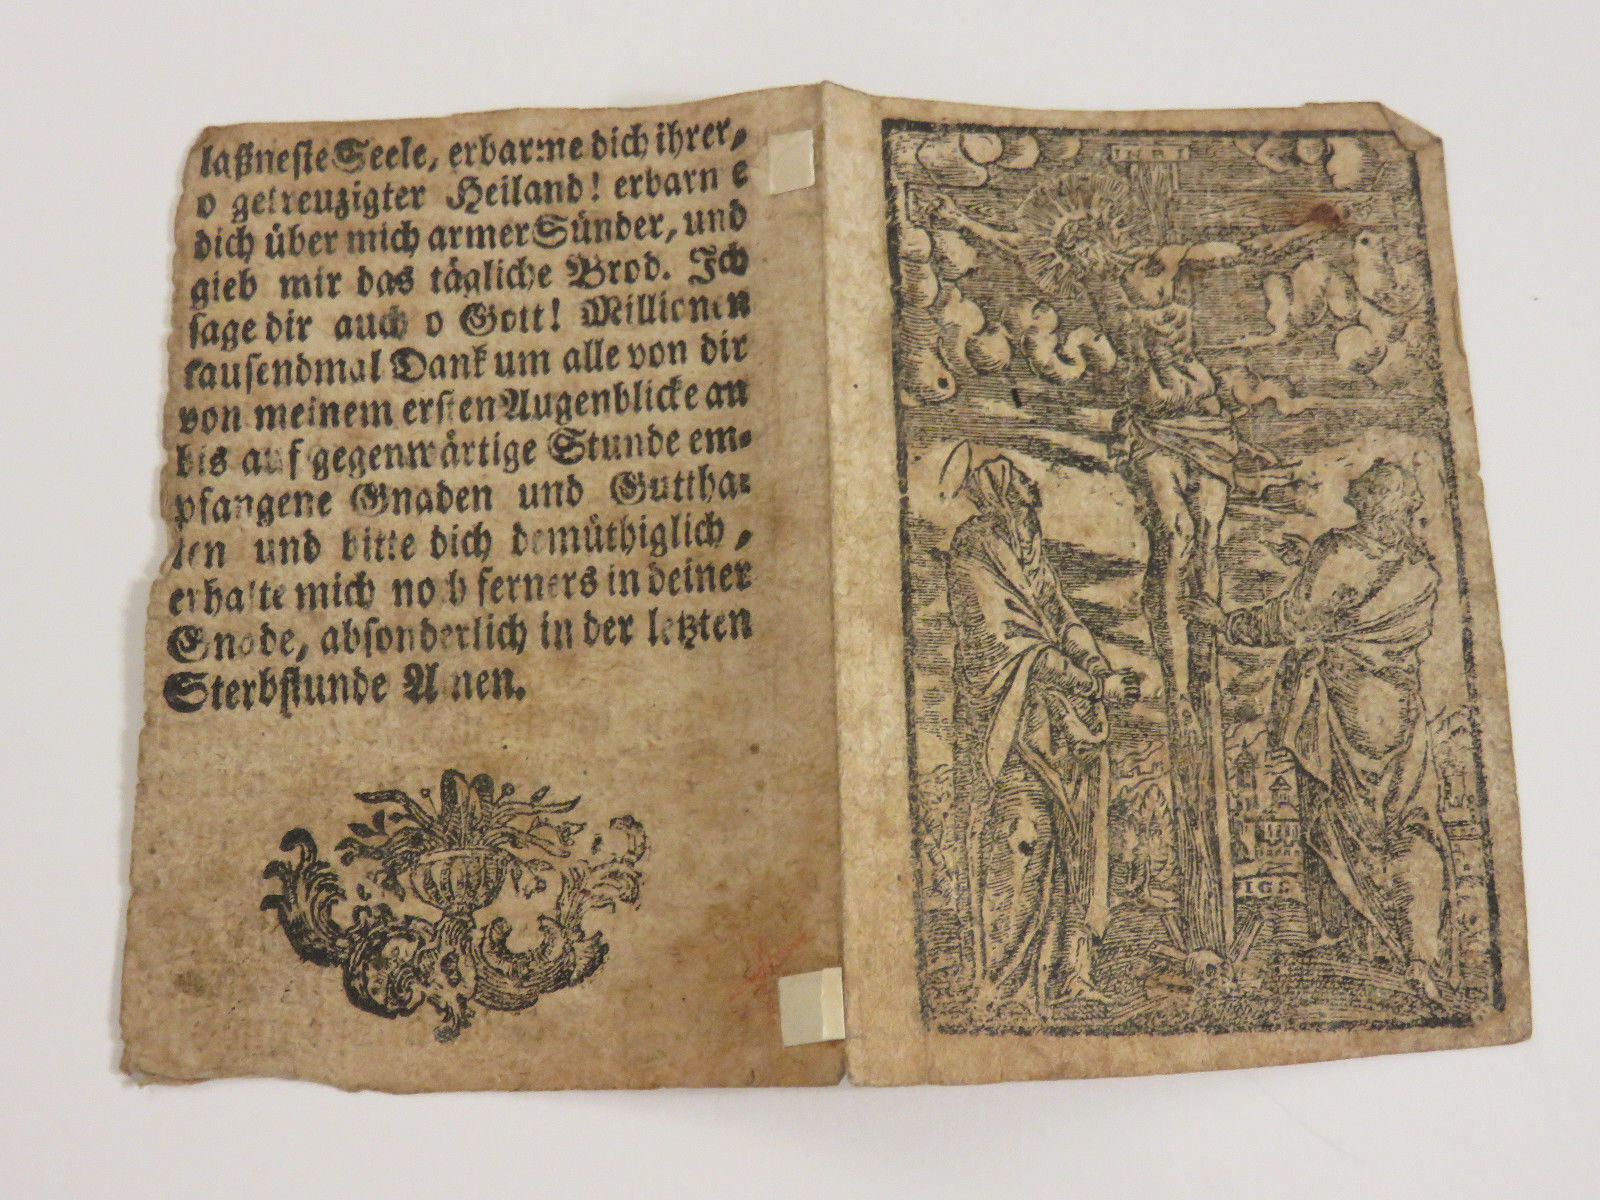 laßneste Seele, erbarme dich ihrer,
o gekreuzigter Heiland! erbarme
dich über mich armer Sünder, und
gieb mir das tägliche Brod. Ich
sage dir auch o Gott! Millionen
tausendmal Dank um alle von dir
von meinem ersten Augenblicke an
bis auf gegenwärtige Stunde em-
pfangene Gnaden und Guttha-
ten und bitte dich demüthiglich,
erhalte mich noch ferners in deiner
Gnade, absonderlich in der letzten
Sterbstunde Amen.
INRI